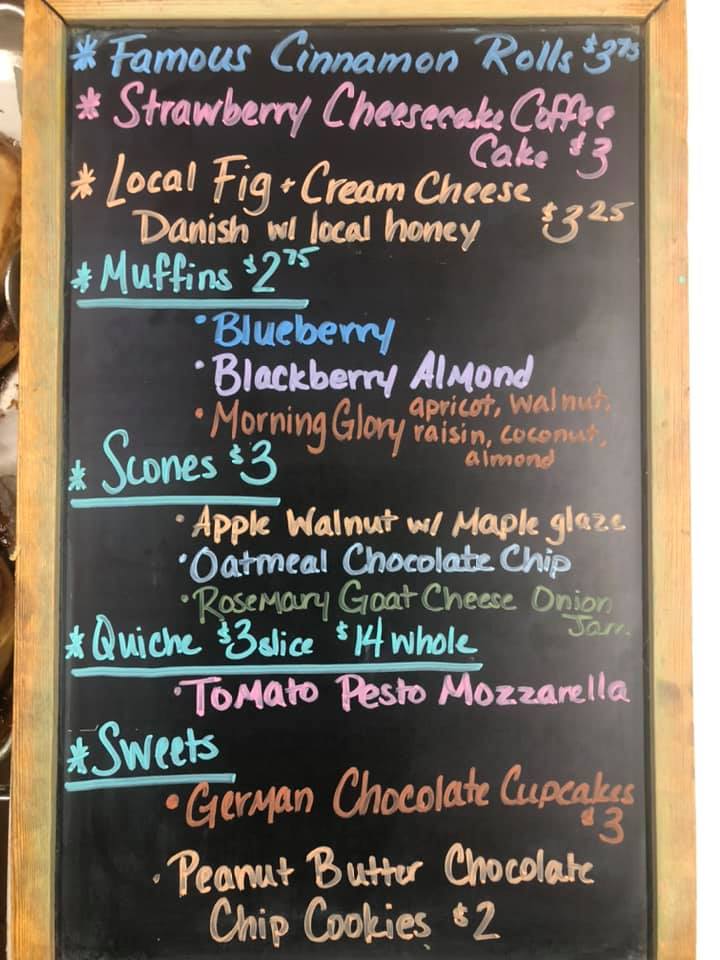 * Famous Cinnamon Rolls $3.75
* Strawberry Cheesecake Coffee
Cake $3
* Local Fig + Cream Cheese
Danish w/ local honey $3.25
* Muffins $2.75
• Blueberry
• Blackberry Almond
• Morning Glory apricot, walnut,
raisin, coconut,
almond
* Scones $3
• Apple Walnut w/ Maple glaze
• Oatmeal Chocolate Chip
• Rosemary Goat Cheese Onion
Jam
* Quiche $3 slice $14 whole
• Tomato Pesto Mozzarella
* Sweets
• German Chocolate Cupcakes
$3
• Peanut Butter Chocolate
Chip Cookies $2